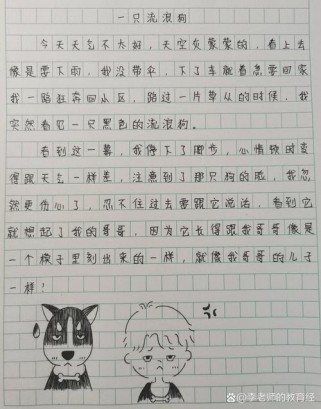 一只流浪狗
今天天气不太好，天空灰蒙蒙的，看上去
像是要下雨，我没带伞，下了车就着急要回家
我一路狂奔回小区，路过一片草丛的时候，我
突然看见一只黑色的流浪狗。
看到这一幕，我停下了脚步，心情顿时变
得跟天气一样差，注意到了那只狗的脸，我忽
就更伤心了，忍不住过去要跟它说话，看到它
就想起了我的哥哥，因为它长得跟我哥哥像是
一个模子里刻出来的一样，就像我哥哥的儿子
一样！
@李老师的教育经